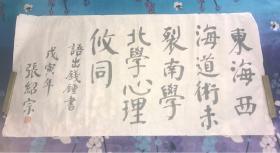 東海西
海道術未
裂南學
北學心理
攸同
語出錢鍾書
戊寅年
張紹宗